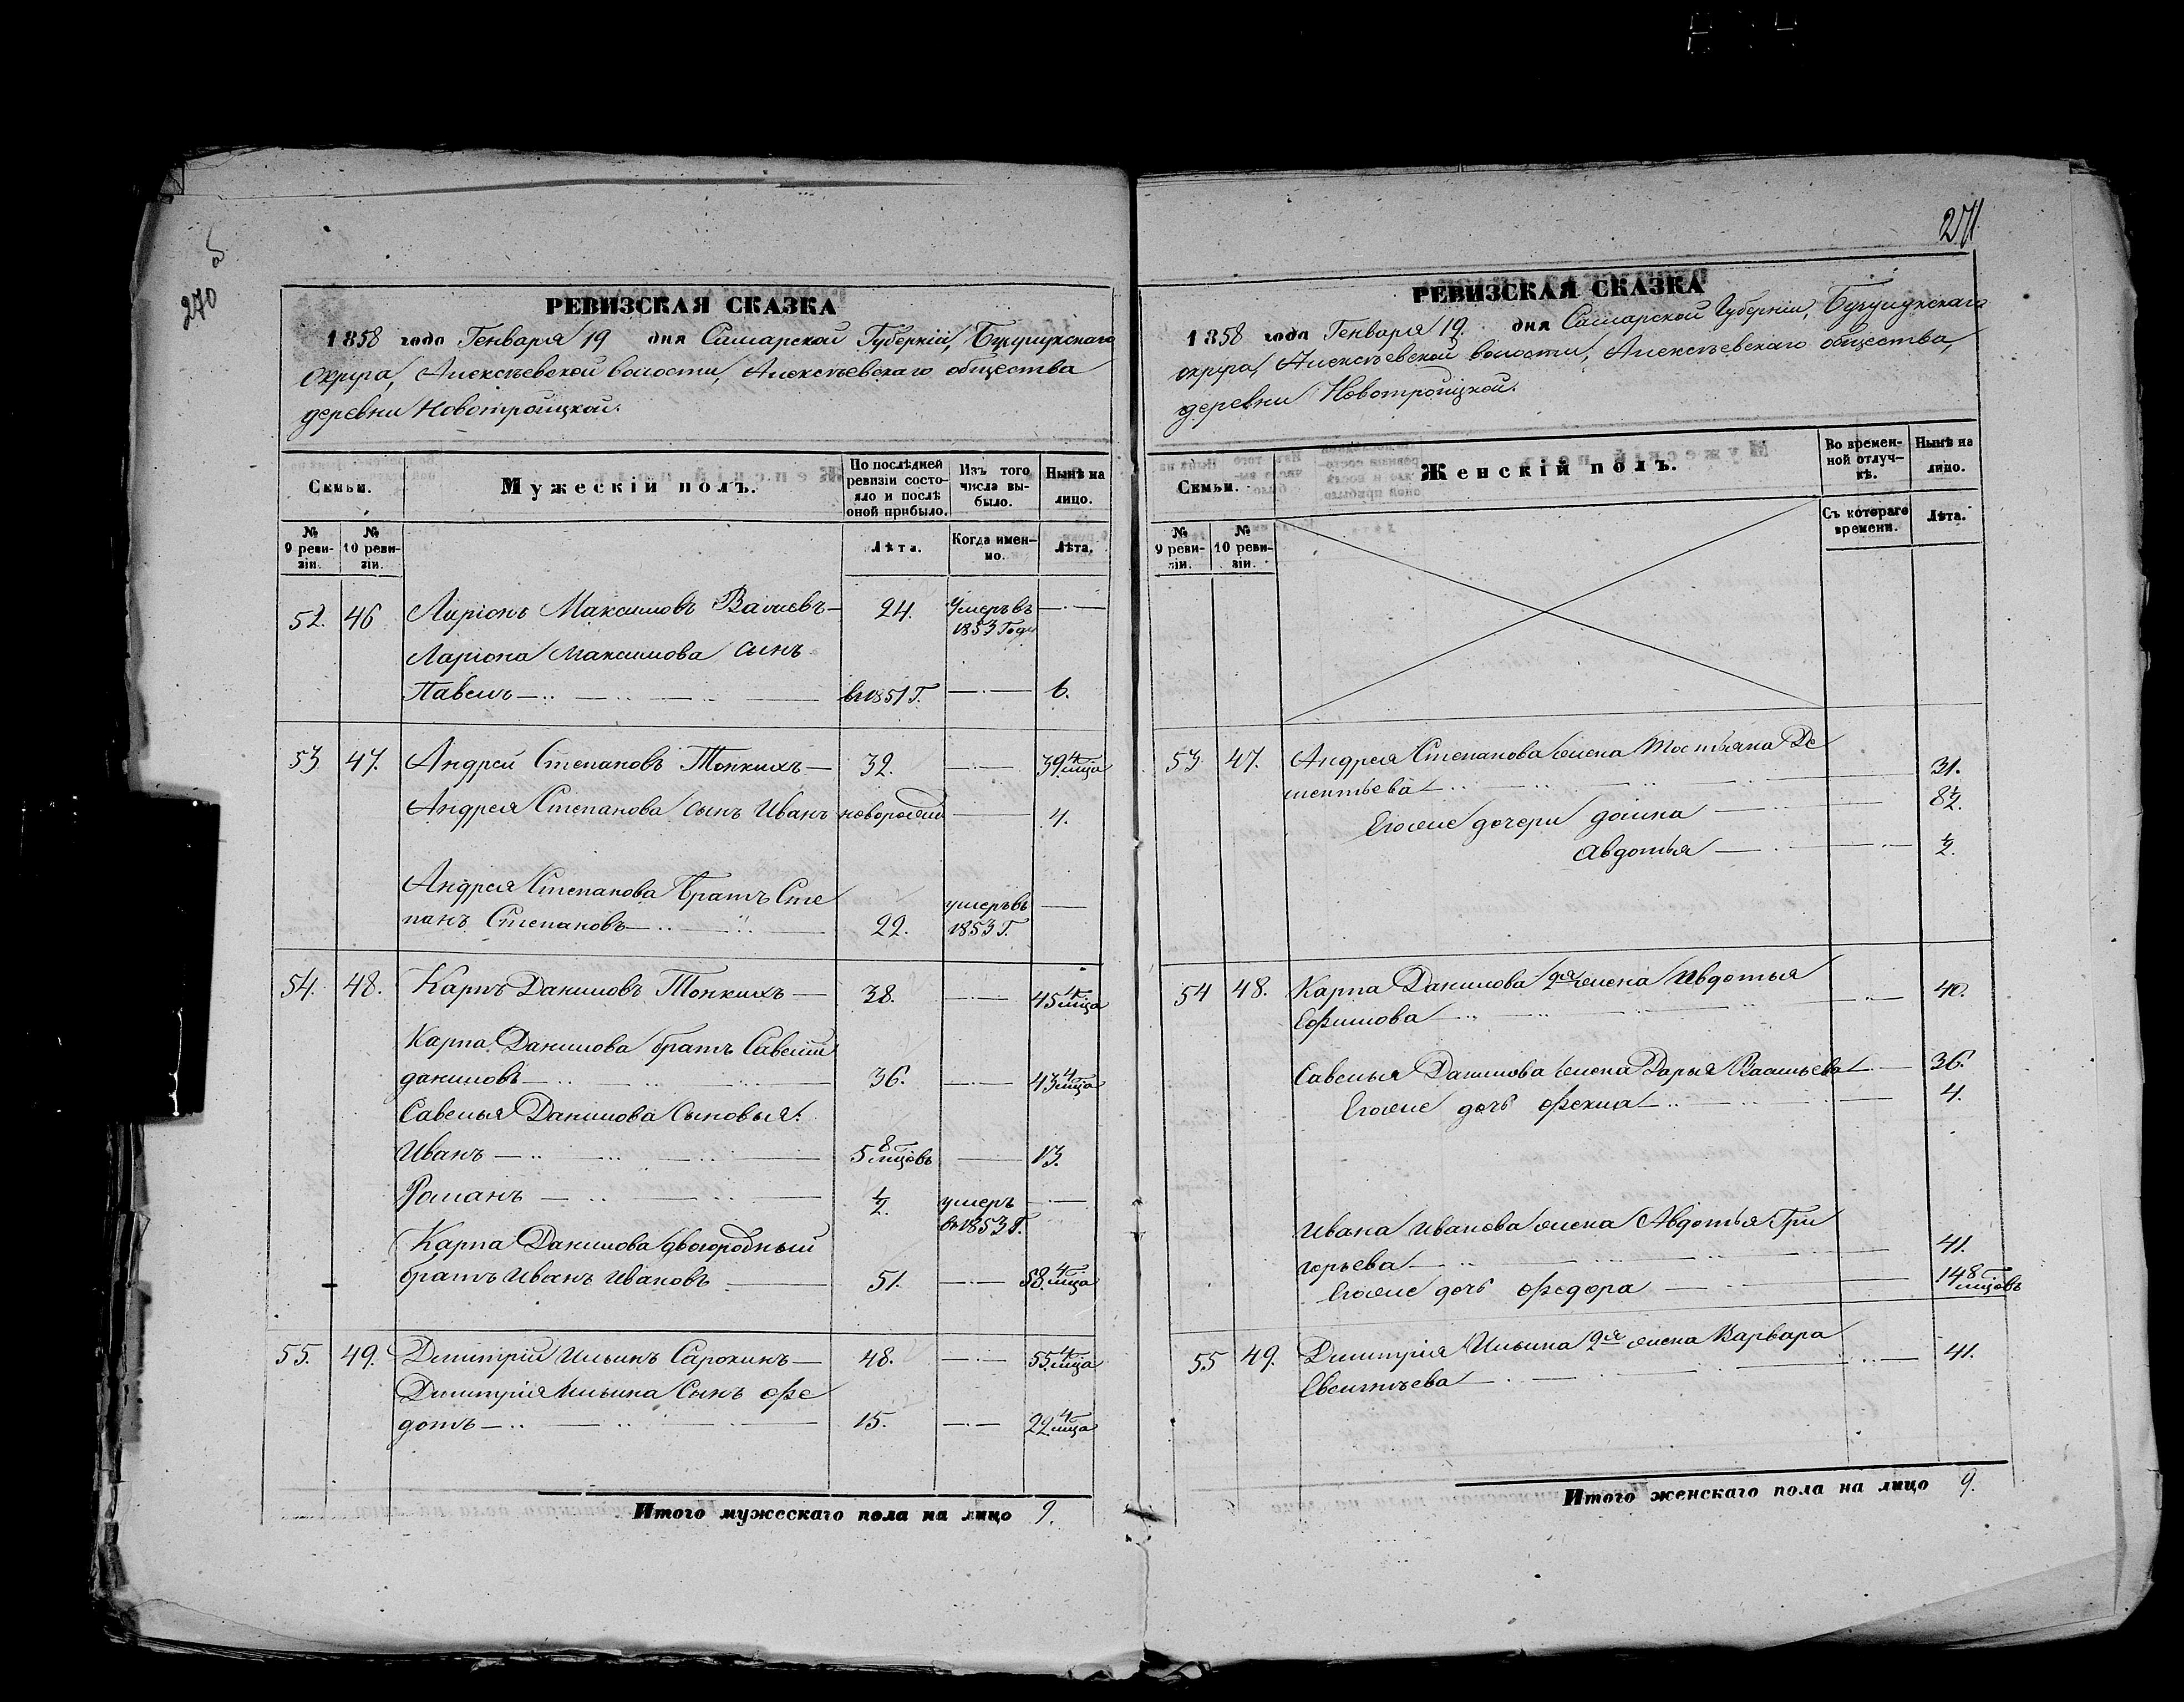 270
271
РЕВИЗСКАЯ СКАЗКА
1858 года Генваря 19 дня Самарской Губерніи, Бузулукскаго
округа, Алексѣевской волости, Алексѣевскаго общества
деревни Новотроицкой.
Семьи.
Мужескій полъ.
По послѣдней ревизіи состояло и послѣ оной прибыло.
Изъ того числа выбыло.
Нынѣ на лицо.
№ 9 ревизіи.
№ 10 ревизіи.
Лѣта.
Когда именно.
Лѣта.
52. 46 Ларіонъ Максимовъ — 24. Умеръ въ — · —
1853 Году
Ларіона Максимова сынъ
Павелъ — въ 1851 Г. — · — 6.
53. 47. Андрей Степановъ Тонкихъ — 32. — · — 39 4 мца
Андрея Степанова сынъ Иванъ новорожден — 4.
Андрея Степанова братъ Сте
панъ Степановъ — 22. умеръ въ 1853 Г. —
54. 48. Карпъ Даниловъ Тонкихъ — 38. — · — 45 4 мца
Карпа Данилова братъ Савелій
даниловъ — 36. — · — 43 4 мца
Савелья Данилова сыновья:
Иванъ — 5 8 мцовъ — 13.
Романъ — ½. умеръ — · —
въ 1853 Г.
Карпа Данилова двоюродный
братъ Иванъ Ивановъ — 51. — · — 58. 4 мца
55. 49. Димитрій Ильинъ Сарокинъ — 48. — · — 55 4 мца
Димитрія Ильина Сынъ Фе
дотъ — 15. — · — 22 4 мца
Итого мужескаго пола на лицо 9.
РЕВИЗСКАЯ СКАЗКА
1858 года Генваря 19. дня Самарской Губерніи, Бузулукскаго
округа, Алексѣевской волости, Алексѣевскаго общества,
деревни Новотроицкой.
Семьи.
Женскій полъ.
Во временной отлучкѣ.
Нынѣ на лицо.
№ 9 ревизіи.
№ 10 ревизіи.
Съ котораго времени.
Лѣта.
53. 47. Андрея Степанова жена Де
ментьева — 31.
Егоже дочери домна — 8½.
Авдотья — ½.
54 48. Карпа Данилова 2я жена Авдотья
Ефимова — 40.
Савелья Данилова жена Дарья Васильева — 36.
Егоже дочь Фекла — 4.
Ивана Иванова жена Авдотья Гри
горьева — 41.
Егоже дочь Федора — 14 8 мцовъ
55 49. Димитрія Ильина 2я жена Варвара
— 41.
Итого женскаго пола на лицо 9.